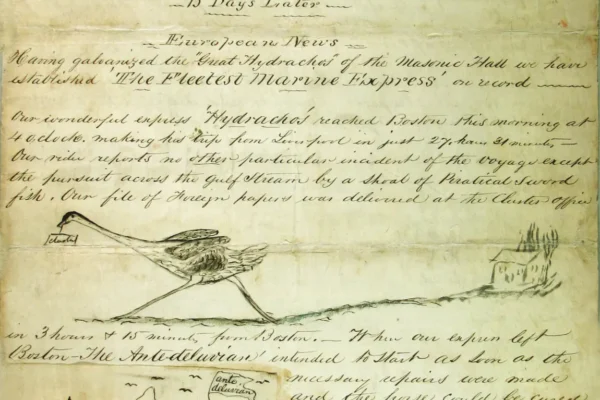 15 Days Later
European News
Having galvanized the "Great Hydrachos" of the Masonic Hall we have
established 'The Fleetest Marine Express' on record
Our wonderful express 'Hydrachos' reached Boston this morning at
4 oclock. making his trip from Liverpool in just 27. hours 31 minutes —
Our rider reports no other particular incident of the voyage except
the pursuit across the Gulf Stream by a shoal of Piratical Sword
fish. Our file of Foreign papers was delivered at the Cluster office
Cluster
in 3 hours & 15 minutes from Boston. — When our express left
Boston - The Antedeluvian' intended to Start as soon as the
ante
deluvian
necessary repairs were made
and the horse could be